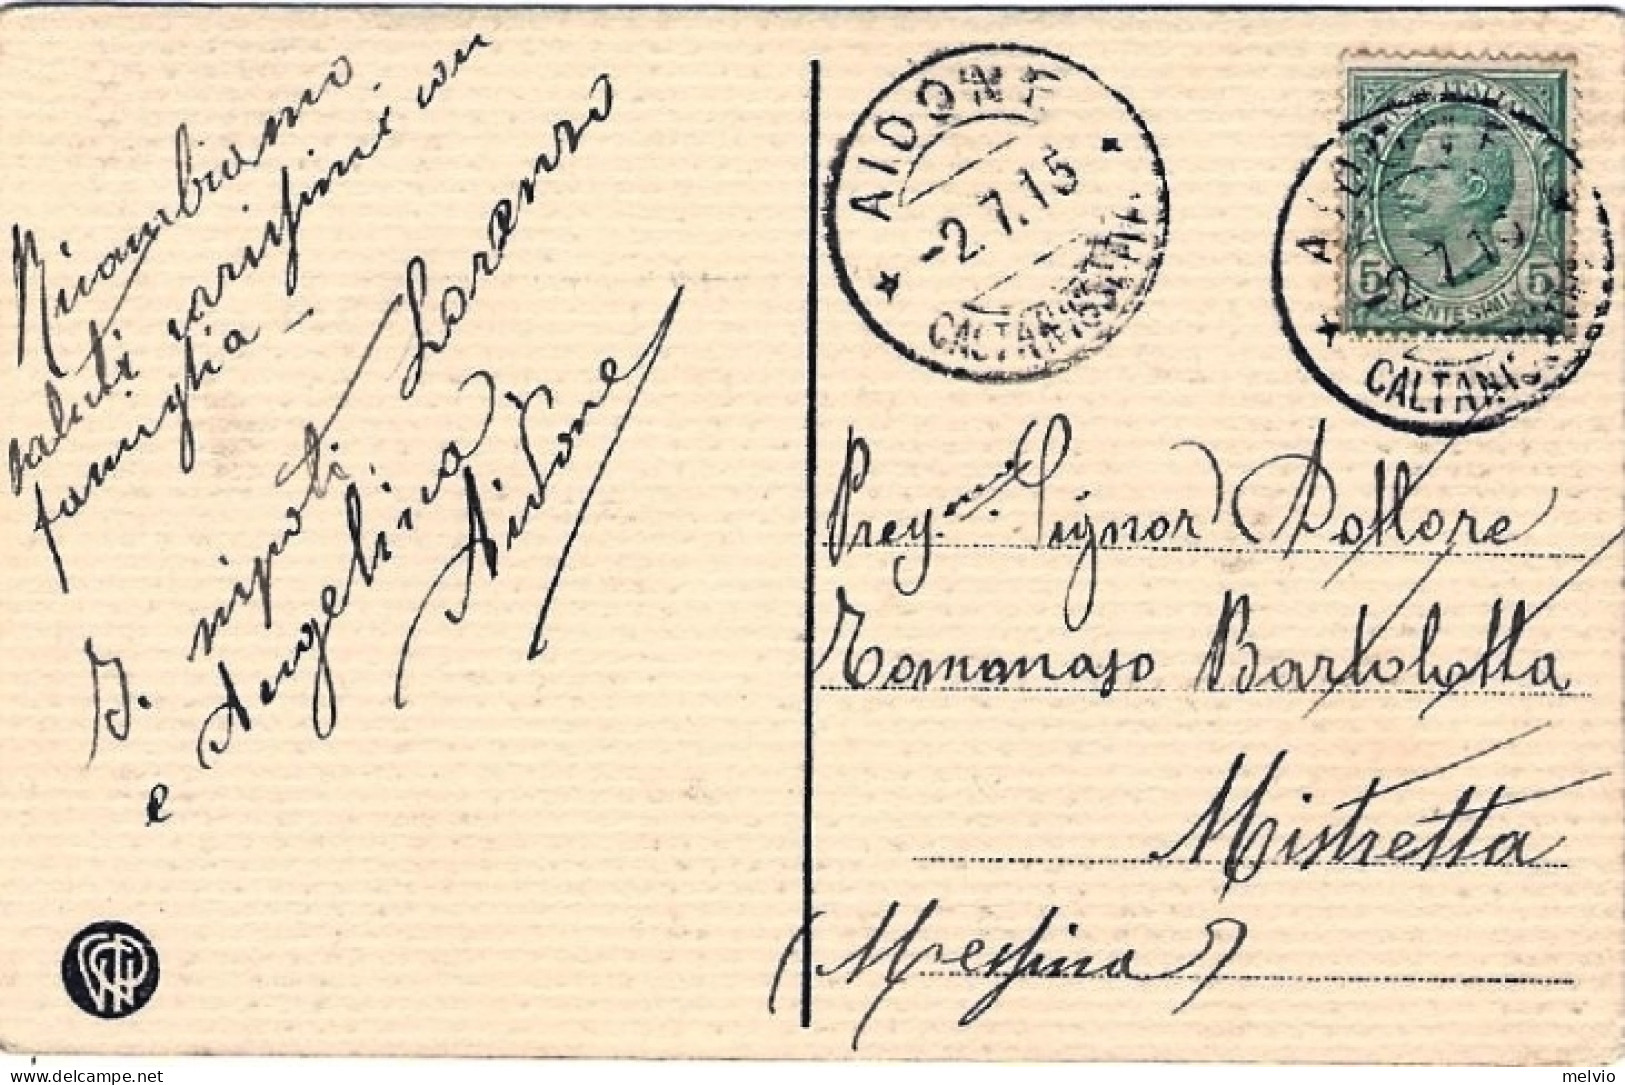 Ricambiano
saluti xxrissimi con
famiglia -
I. nipoti Lorenzo
e Angelina
Aidone
AIDONE
-2.7.15
CALTANISSETTA
AIDONE
-2.7.15
CALTANISSETTA
5 CENTESIMI 5
Preg.mo Signor Dottore
Tommaso Bartolotta
Mistretta
(Messina)
melvio
Delcampe.net